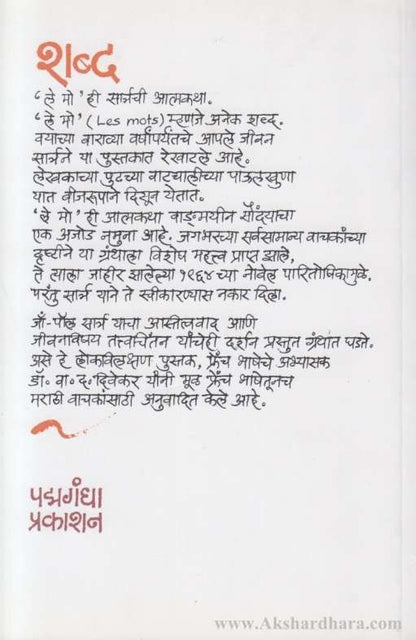 शब्द
'ले मो' ही सार्त्रची आत्मकथा.
'ले मो' (Les mots) म्हणजे अनेक शब्द.
वयाच्या बाराव्या वर्षापर्यंतचे आपले जीवन
सार्त्रने या पुस्तकात रेखाटले आहे.
लेखकाच्या पुढच्या वाटचालीच्या पाऊलखुणा
यात बीजरूपाने दिसून येतात.
'ले मो' ही आत्मकथा वाङ्मयीन सौंदर्याचा
एक अजोड नमुना आहे. जगभरच्या सर्वसामान्य वाचकांच्या
दृष्टीने या ग्रंथाला विशेष महत्त्व प्राप्त झाले,
ते त्याला जाहीर झालेल्या १९६४च्या नोबेल पारितोषिकामुळे.
परंतु सार्त्र याने ते स्वीकारण्यास नकार दिला.
जाँ-पौल सार्त्र याचा अस्तित्ववाद आणि
जीवनाविषयी तत्त्वचिंतन यांचेही दर्शन प्रस्तुत ग्रंथात घडते.
असे हे लोकविलक्षण पुस्तक, फ्रेंच भाषेचे अभ्यासक
डॉ. वा. द. दिवेकर यांनी मूळ फ्रेंच भाषेतूनच
मराठी वाचकांसाठी अनुवादित केले आहे.
पद्मगंधा
प्रकाशन
www.Akshardhara.com